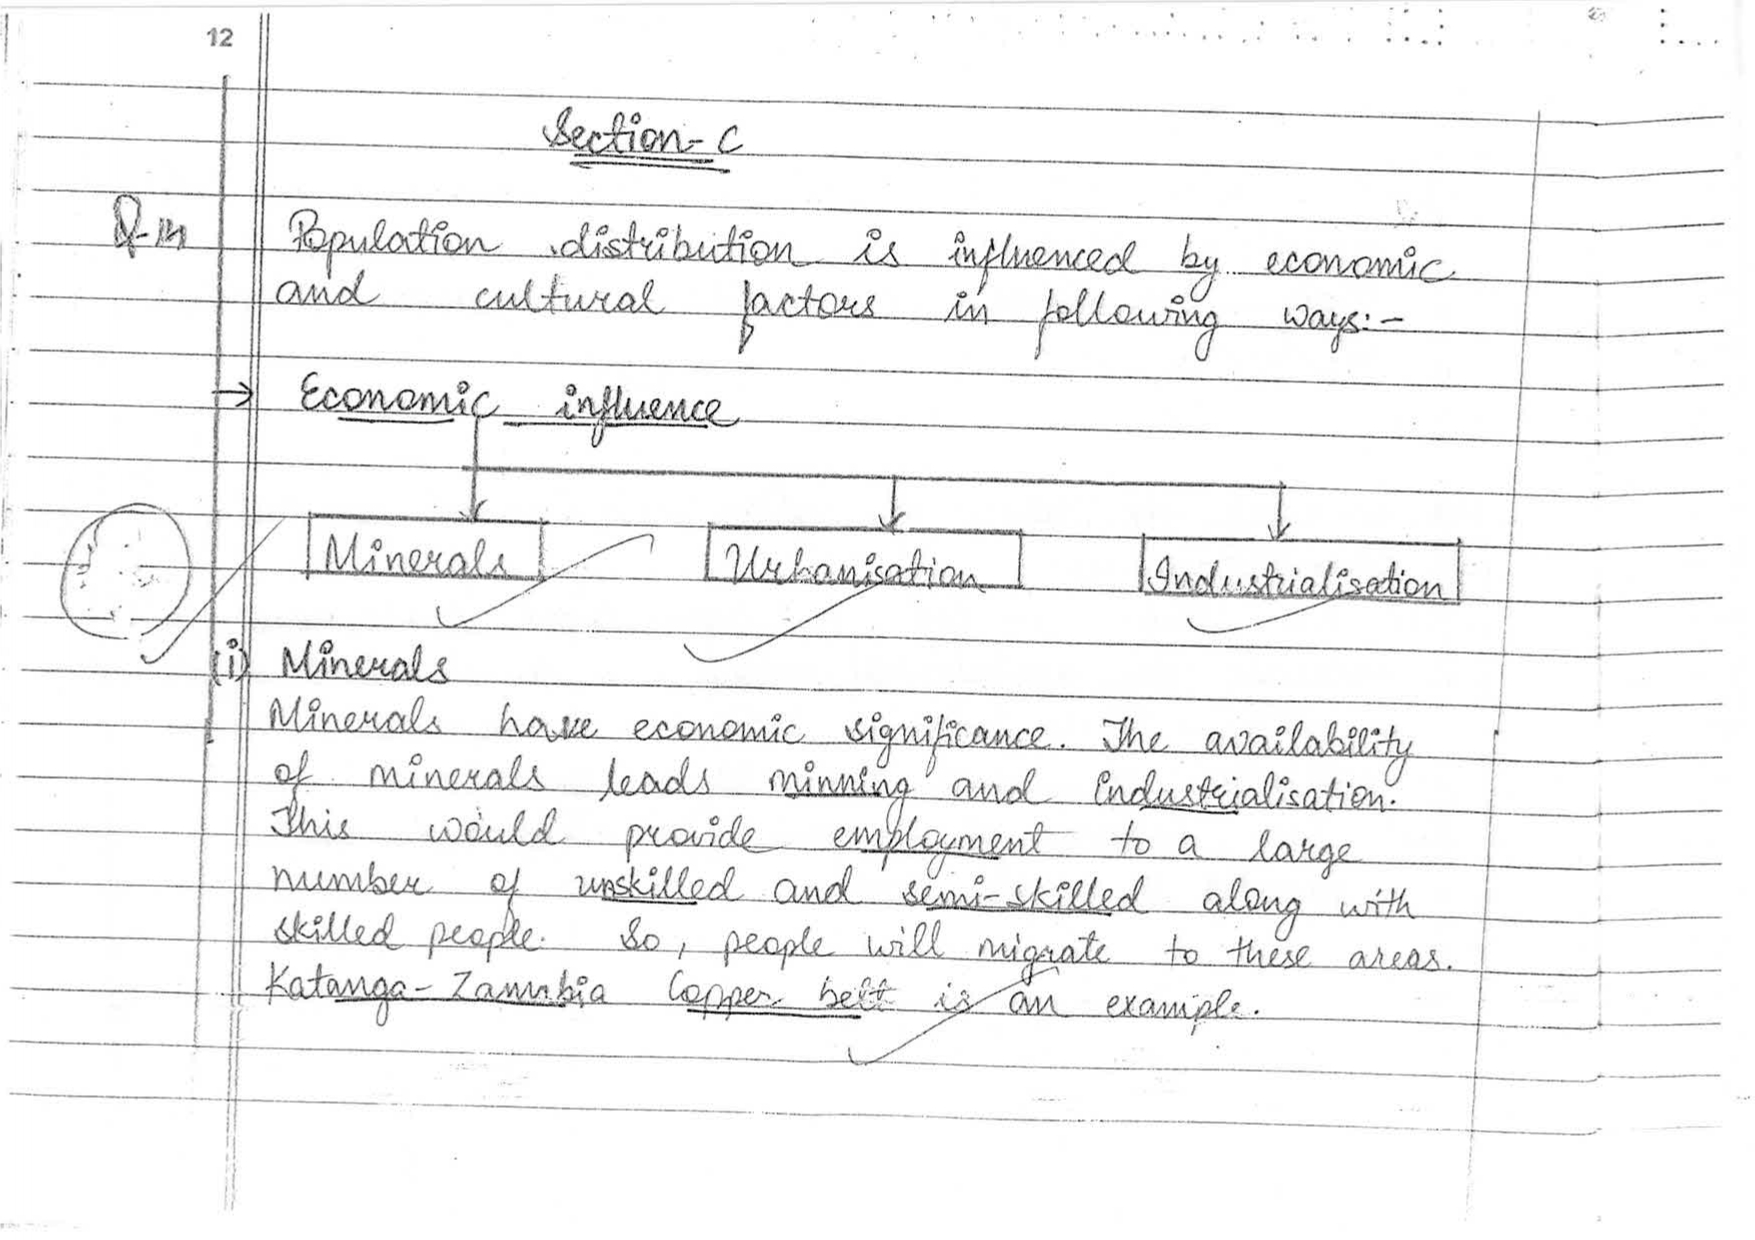 12
Section-C
Q-14
Population distribution is influenced by economic
and cultural factors in following ways:-
→ Economic influence
Minerals Urbanisation Industrialisation
(i) Minerals
Minerals have economic significance. The availability
of minerals leads minning and industrialisation.
This would provide employment to a large
number of unskilled and semi-skilled along with
skilled people. So, people will migrate to these areas.
Katanga-Zambia Copper belt is an example.